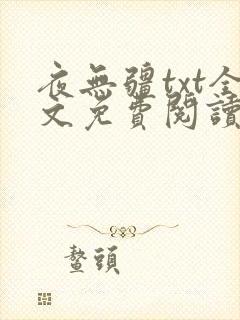 夜無疆txt全
文免費閱讀
鰲頭